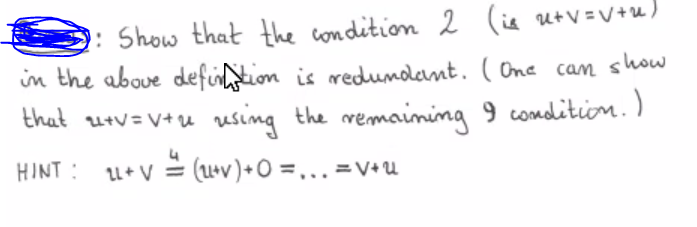 : Show that the condition 2 (is u+v=v+u)
in the above definition is redundant. (One can show
that u+v=v+u using the remaining 9 condition.)
HINT: u+v \overset{4}{=} (u+v)+0 =...=v+u